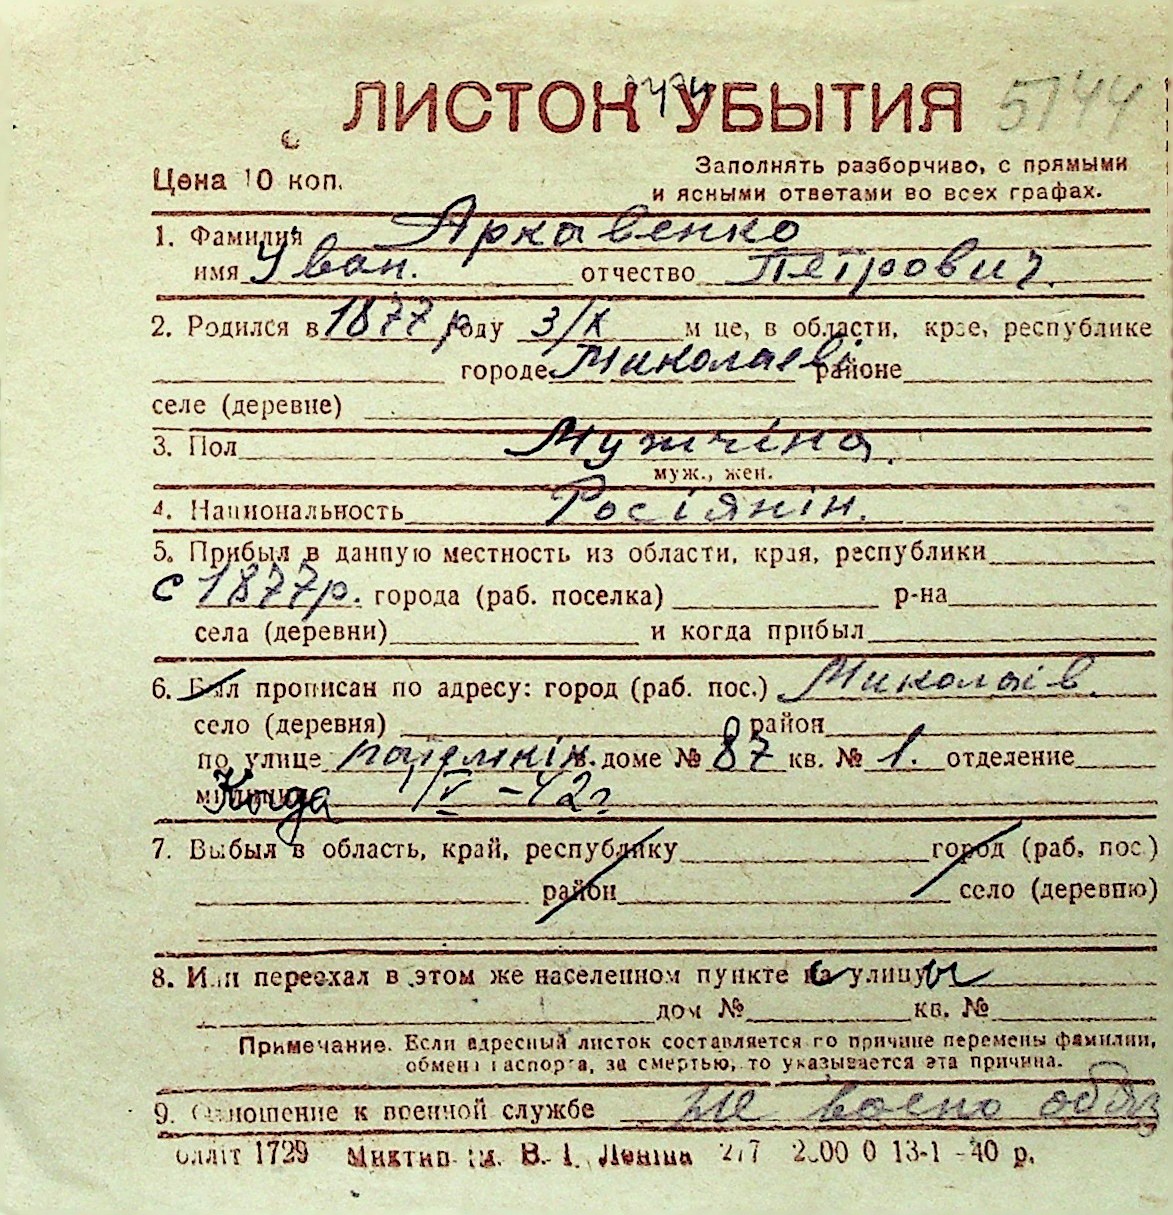 ЛИСТОК УБЫТИЯ 5144
Цена 10 коп.
Заполнять разборчиво, с прямыми
и ясными ответами во всех графах.
1. Фамилия Аркавенко
имя Уван. отчество Петрович.
2. Родился в 1877 р году 3/X м це, в области, крае, республике
городе Миколаєві районе
селе (деревне)
3. Пол Мужчіна.
муж., жен.
4. Национальность Росіянін.
5. Прибыл в данную местность из области, края, республики
с 1877р. города (раб. поселка) р-на
села (деревни) и когда прибыл
6. Был прописан по адресу: город (раб. пос.) Миколаїв.
село (деревня) район
по улице доме № 87 кв. № 1. отделение
Когда IV -42г
7. Выбыл в область, край, республику город (раб. пос.)
район село (деревню)
8. Или переехал в этом же населенном пункте с улицы
дом № кв. №
Примечание. Если адресный листок составляется по причине перемены фамилии,
обмена паспорта, за смертью, то указывается эта причина.
9. Отношение к военной службе не воено обяз
блліт 1729 Миктип ім. В. І. Леніна 217 2000 0 13-1 -40 р.